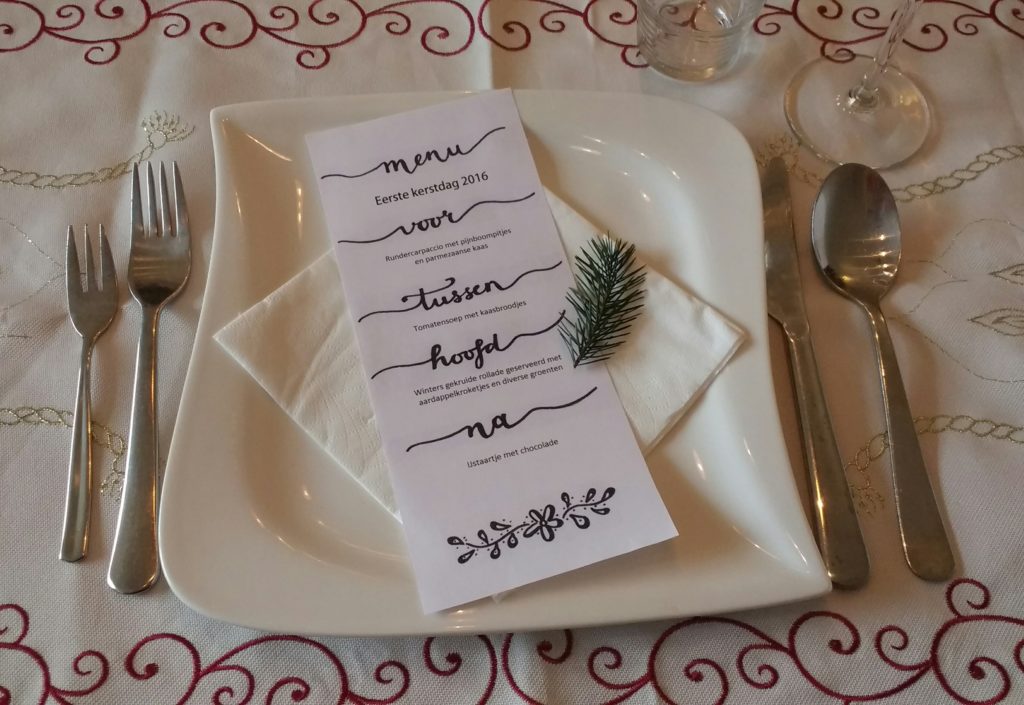 menu
Eerste kerstdag 2016
voor
Rundercarpaccio met pijnboompitjes
en parmezaanse kaas
tussen
Tomatensoep met kaasbroodjes
hoofd
Winters gekruide rollade geserveerd met
aardappelkroketjes en diverse groenten
na
IJstaartje met chocolade